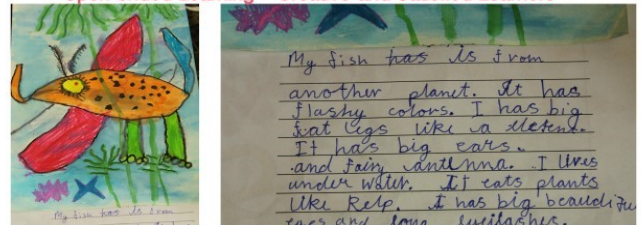 My fish has is from
My fish has is from
another planet. It has
flashy colors. I has big
fat legs like a
It has big ears.
and fairy antenna. I lives
under water. It eats plants
like Kelp. I has big
eyes and long